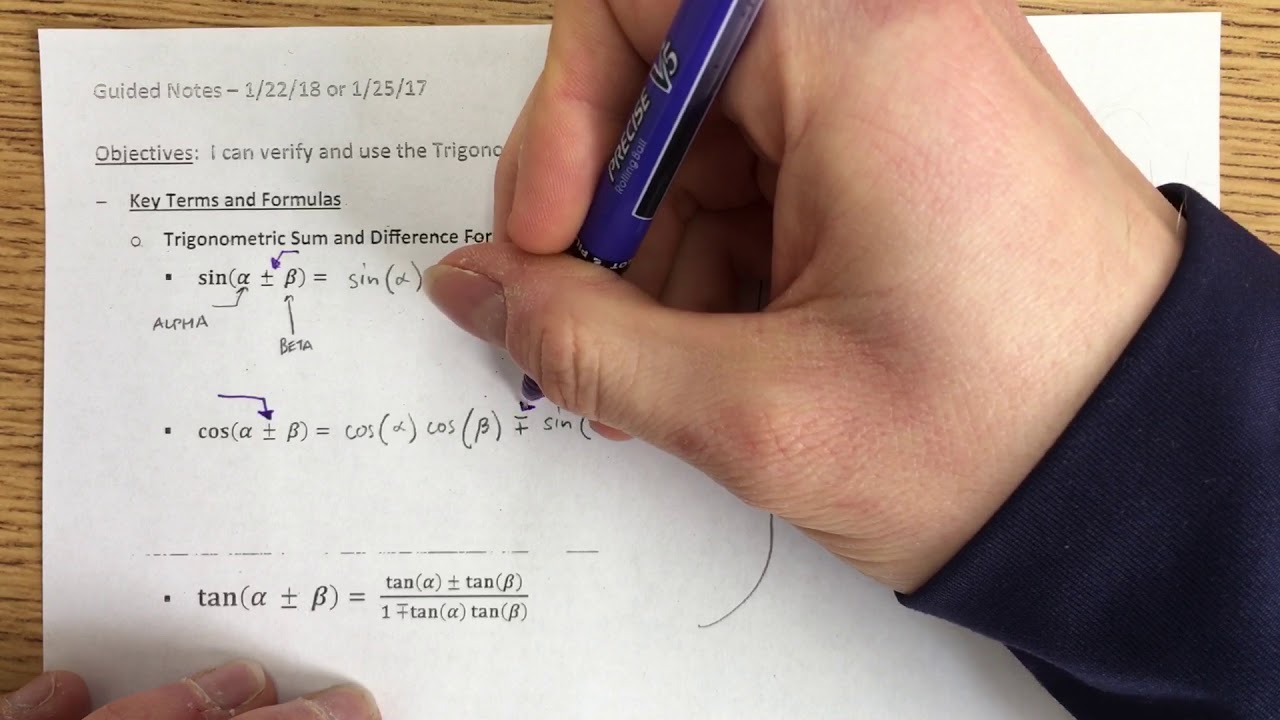 Guided Notes – 1/22/18 or 1/25/17
Objectives: I can verify and use the
– Key Terms and Formulas
o Trigonometric Sum and Difference
▪ sin(α ± β) = sin(α)
ALPHA
BETA
▪ cos(α ± β) = cos(α) cos(β) ∓ sin(
▪ tan(α ± β) = tan(α) ± tan(β)
1 ∓tan(α) tan(β)
PRECISE V5
Rolling Ball